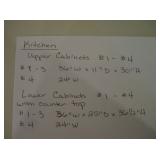 Kitchen
Upper Cabinets #1 - #4
#1-3 36"W x 11"D x 30"H
#4 24"W
Lower Cabinets #1 - #4
with counter top
#1-3 36"W x 25"D x 36½"H
#4 24"W